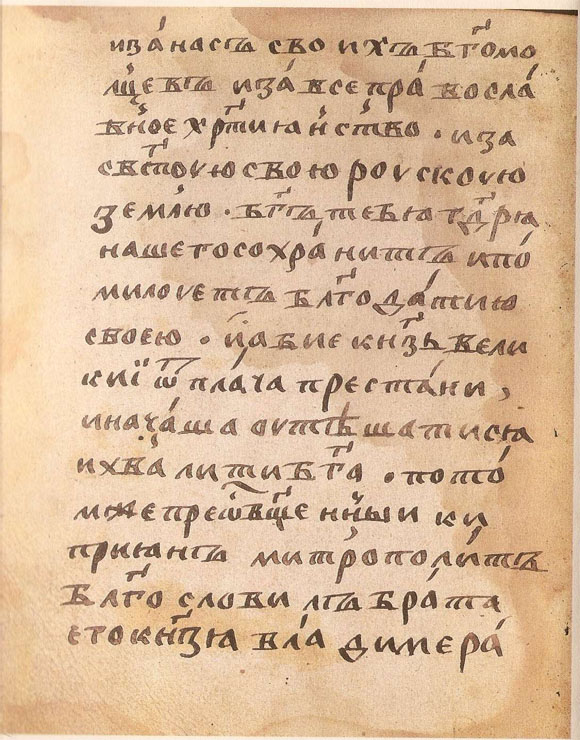 изана́съ своихъ б҃гомо
л͛цевъ иза́ всепра́восла́
вное хр҃тиӕ́нство · иза
свт҃оую свою роускоую
зе́млю · б҃гъ, тебѧ г҃дрѧ
нашегосохра́нитъ ипо́
милоуетъ бл҃года́тию
своею · и҆абие кн҃зь вели
киї ѿ пла́ча престани,
инача́ша оутѣшатисѧ
ихва́лити б҃га · пото́
мже преѡс҃ще́нныи ки
приӕнъ митрополи́тъ
бл҃гословилъ бра́та
его кн҃зѧ вла́димера́